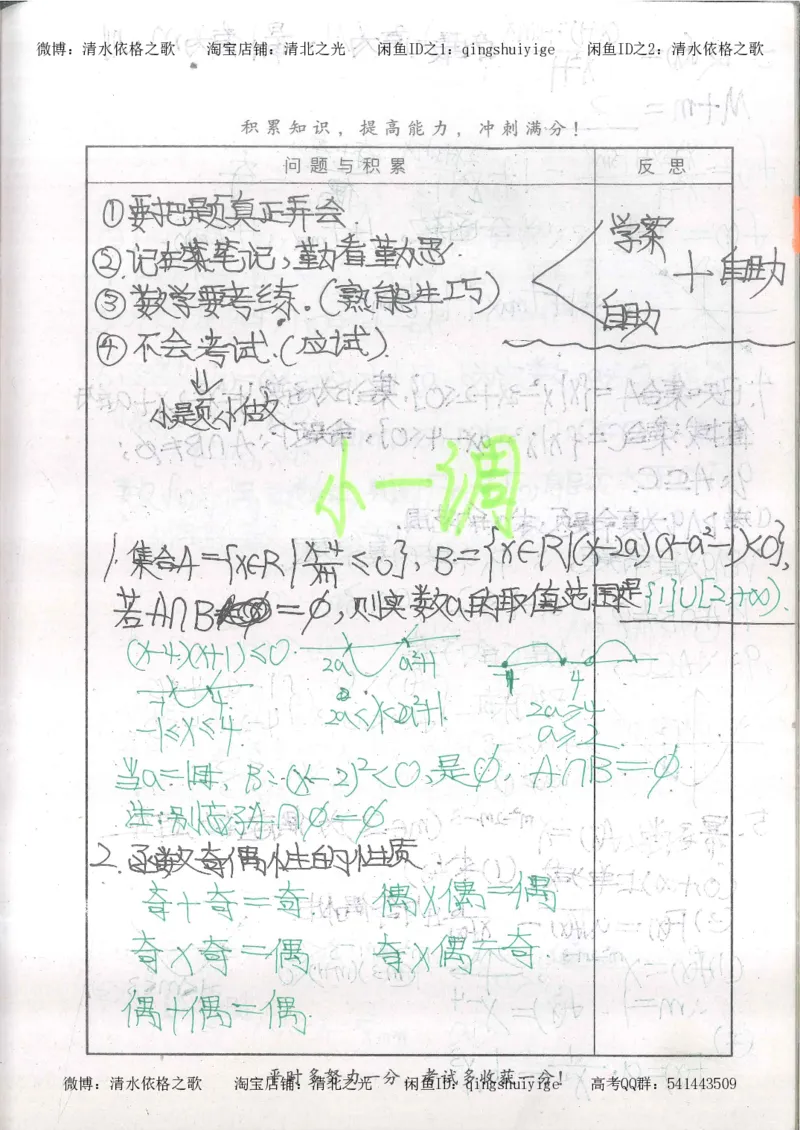 微博：清水依格之歌 淘宝店铺：清北之光 闲鱼ID之1：qingshuiyige 闲鱼ID之2：清水依格之歌
积累知识，提高能力，冲刺满分！
问题与积累 反思
①要把题真正弄会.
②.记在案笔记，勤看勤思.
③数学要考练.(熟能生巧)
④不会考试.(应试).
小题小做
学案
自助
+自助
小一调
1.集合A={x∈R|(x-4)/(x+1)≤0}, B={x∈R|(x-2a)(x-a²-1)<0},
若A∩B=∅,则实数a的取值范围是{1}∪[2,+∞).
(x-4)(x+1)≤0.
2a a²+1
-1 4
-1 4
-1≤x≤4.
2a<x<a²+1.
2a≥4
a≥2
当a=1时, B:(x-2)²<0,是∅, A∩B=∅.
注:别忘了A∩∅=∅
2.函数奇偶性的性质
奇+奇=奇 偶×偶=偶
奇×奇=偶 奇×偶=奇
偶+偶=偶.
平时多努力一分，考试多收获一分！
微博：清水依格之歌 淘宝店铺：清北之光 闲鱼ID：qingshuiyige 高考QQ群：541443509